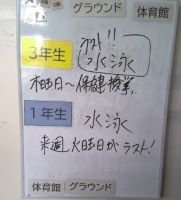 グラウンド
体育館
3年生
ラスト!!
水泳
木曜日~保健授業.
1年生
水泳
来週火曜日がラスト!
体育館
グラウンド